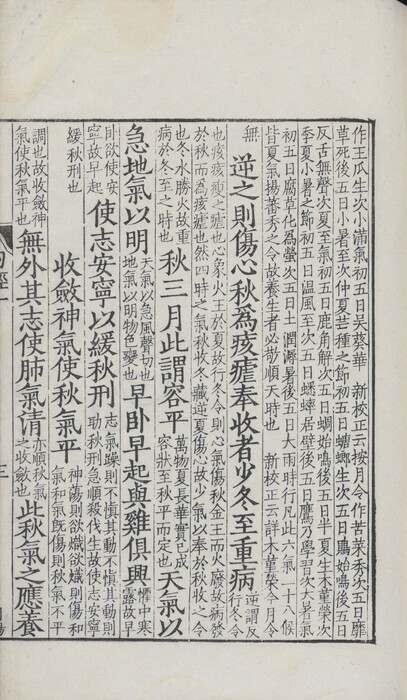 作王瓜生次小滿氣初五日吴葵華　新校正云按月令作苦菜秀次五日靡
草死後五日小暑至次仲夏芒種之節初五日螳螂生次五日鵙始鳴後五日
反舌無聲次夏至氣初五日鹿角解次五日蜩始鳴後五日半夏生木菫榮次
季夏小暑之節初五日温風至次五日蟋蟀居壁後五日鷹乃學習次大暑氣
初五日腐草化為螢次五日土潤溽暑後五日大雨時行凡此六氣一十八候
皆夏氣揚蕃秀之令故養生者必敬順天時也　新校正云詳木菫榮今月令
無　逆之則傷心秋為痎瘧奉收者少冬至重病逆謂反行冬令
也痎痎瘦之瘧也心象火王於夏故行冬令則心氣傷秋金王而火廢故病發
於秋而為痎瘧也然四時之氣秋收冬藏逆夏傷心故少氣以奉於秋收之令
也冬水勝火故重病於冬至之時也　秋三月此謂容平萬物夏長華實已成容狀至秋平而定也天氣以
急地氣以明天氣以急風聲切也地氣以明物色變也早卧早起與雞俱興懼中寒露故早
卧欲使安寧故早起使志安寧以緩秋刑志氣躁則不慎其動不慎其動則助秋刑急順殺伐生故使志安寧
緩秋刑也　收斂神氣使秋氣平神蕩則欲熾欲熾則傷和氣和氣既傷則秋氣不平
調也故收斂神氣使秋氣平也無外其志使肺氣清亦順秋氣之收斂也此秋氣之應養